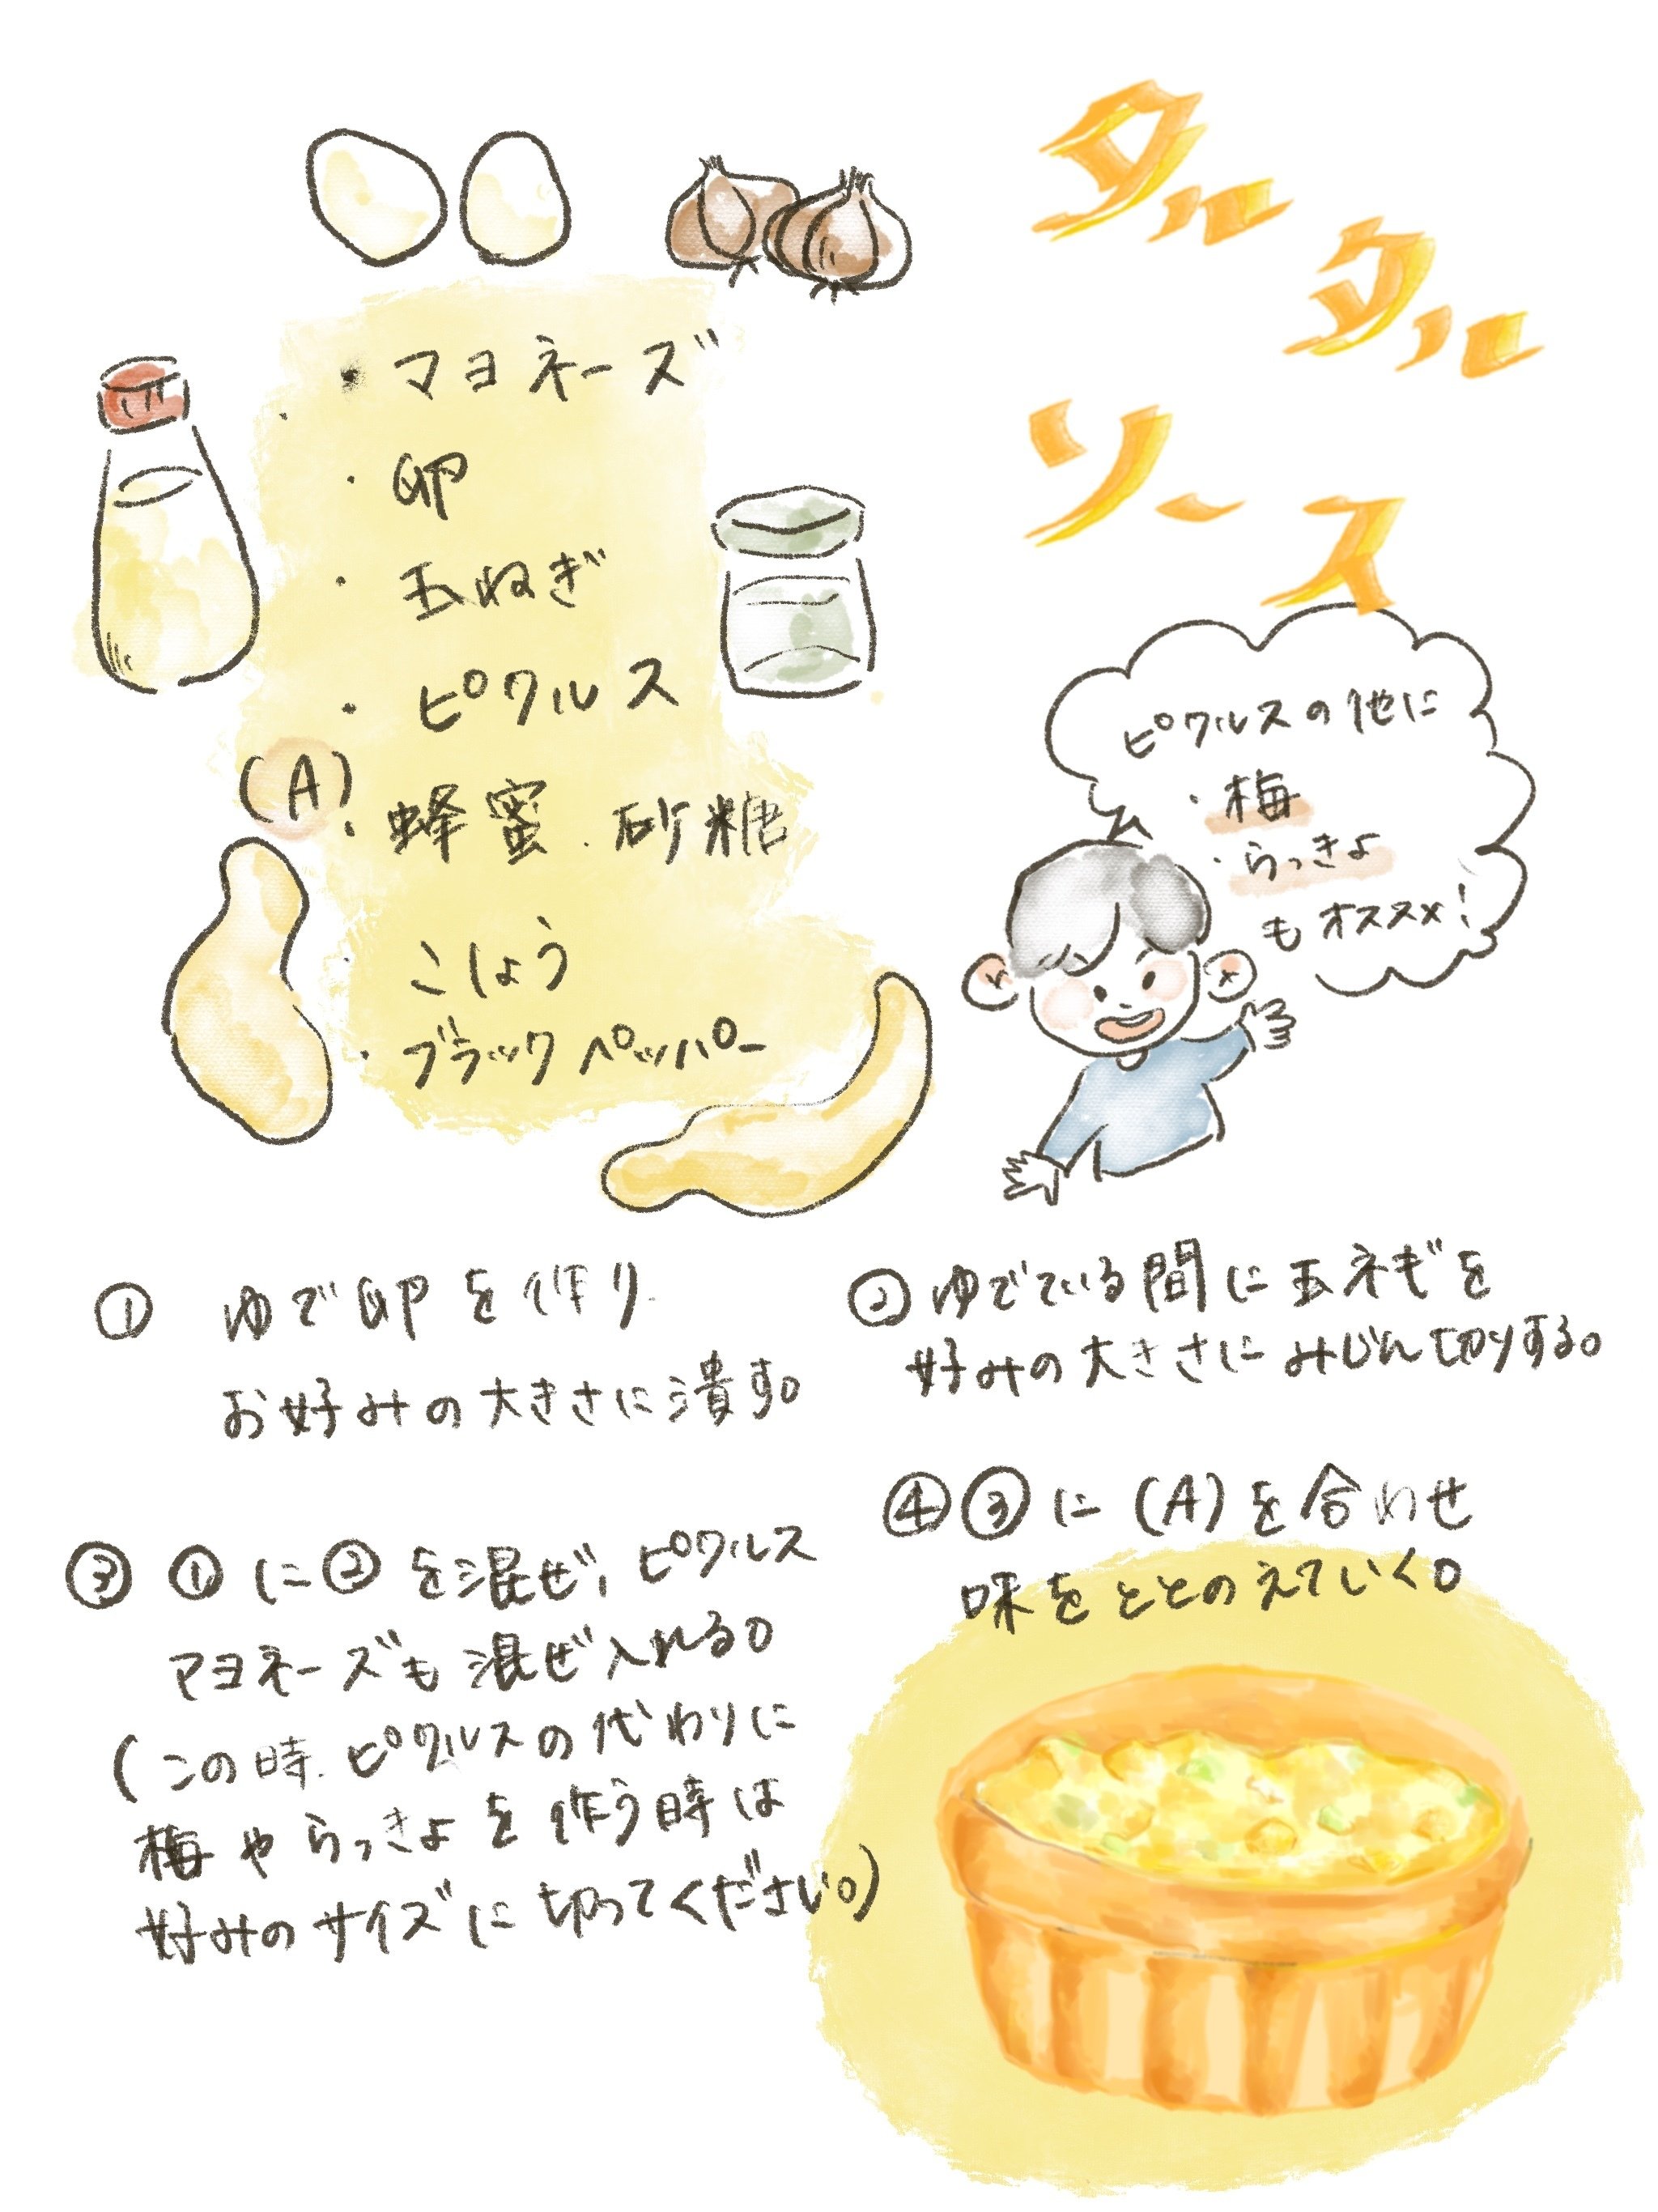 タルタル
ソース
・マヨネーズ
・卵
・玉ねぎ
・ピクルス
(A)・蜂蜜・砂糖
・こしょう
・ブラックペッパー
ピクルスの他に
・梅
・らっきょ
もオススメ!
① ゆで卵を作り
お好みの大きさに潰す。
②ゆでている間に玉ネギを
好みの大きさにみじん切りする。
③ ①に②を混ぜ、ピクルス
マヨネーズも混ぜ入れる。
(この時、ピクルスの代わりに
梅やらっきょを作う時は
好みのサイズに切ってください。)
④③に(A)を合わせ
味をととのえていく。